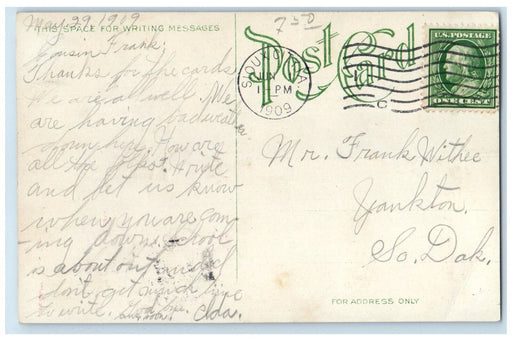 May 29, 1909
THIS SPACE FOR WRITING MESSAGES
Cousin Frank:
Thanks for the cards
We are all well. We
are having bad weather
down here. How are
all the folks? Write
and let us know
when you are com-
-ing down. School
is about out and I
don't get much time
to write.
Ada.
750
Post Card
SIOUX
JUN
1 PM
1909
C
U.S. POSTAGE
ONE CENT
Mr. Frank Withee
Yankton,
So. Dak.
FOR ADDRESS ONLY